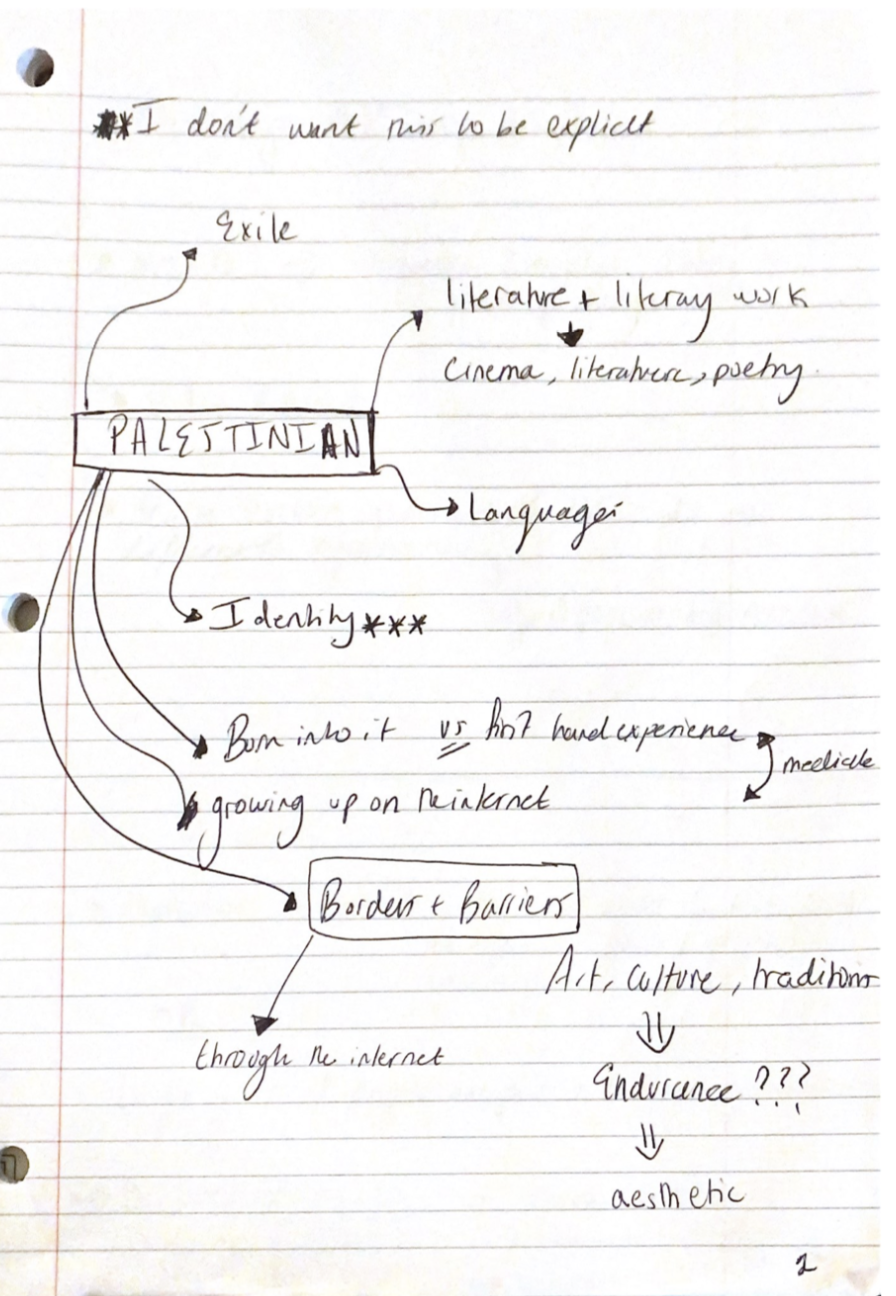 **I don't want this to be explicit
Exile
literature + literay work
cinema, literature, poetry.
PALESTINIAN
Languages
Identity***
Born into it vs first hand experience
mediate
growing up on the internet
Borders + Barriers
Art, culture, traditions
through the internet
Endurance ???
aesthetic
2